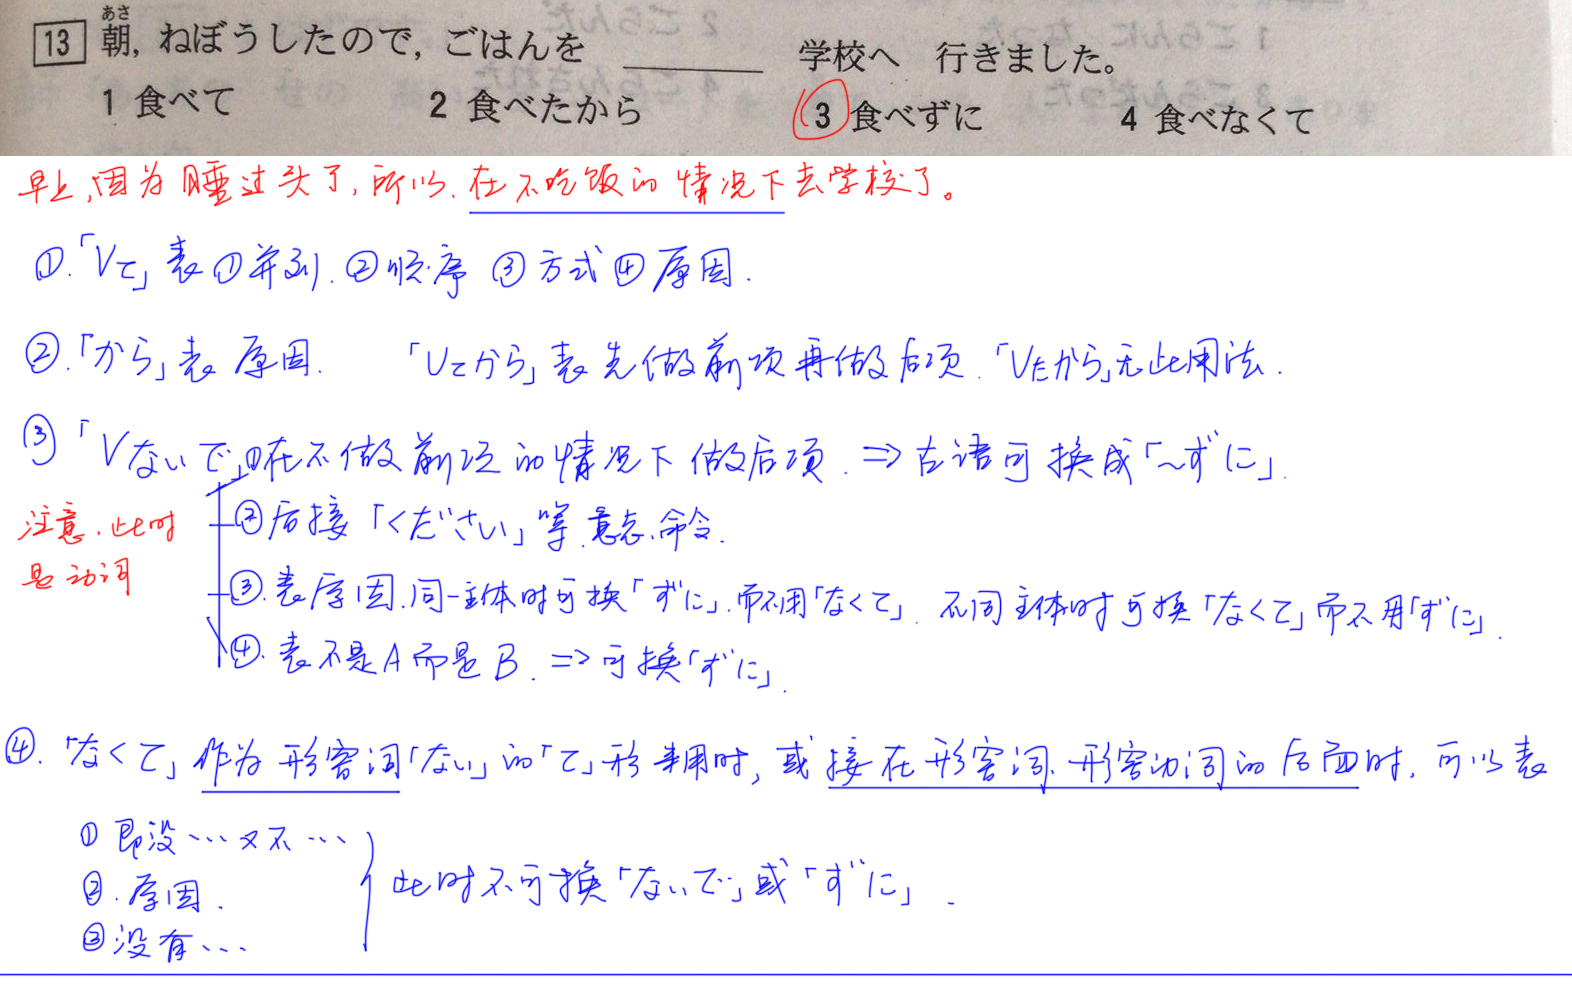 あさ
13 朝，ねぼうしたので，ごはんを ＿＿＿ 学校へ 行きました。
1 食べて 2 食べたから 3 食べずに 4 食べなくて
早上,因为睡过头了,所以,在不吃饭的情况下去学校了。
①.「Vて」表①并列.②顺序③方式④原因.
②.「から」表原因. 「Vてから」表先做前项再做后项.「Vたから」无此用法.
③「Vないで」①在不做前项的情况下做后项.⇒古语可换成「~ずに」.
注意.此时
是动词
②后接「ください」等.意志.命令.
③.表原因.同一主体时可换「ずに」.而不用「なくて」.不同主体时可换「なくて」而不用「ずに」.
④.表不是A而是B.⇒可换「ずに」.
④.「なくて」作为形容词「ない」的「て」形来用时,或接在形容词.形容动词的后面时.可以表
①即没…又不…
②.原因.
③没有…
此时不可换「ないで」或「ずに」.